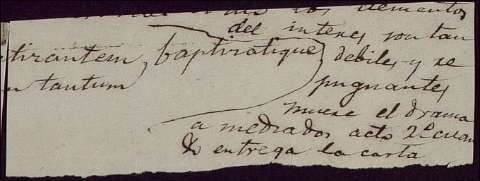 los elementos
del interes, son tan
tirantem, baptiratique, debiles y re
n tantum pugnantes
muere el drama
a mediados acto 2º cuan
entrega la carta